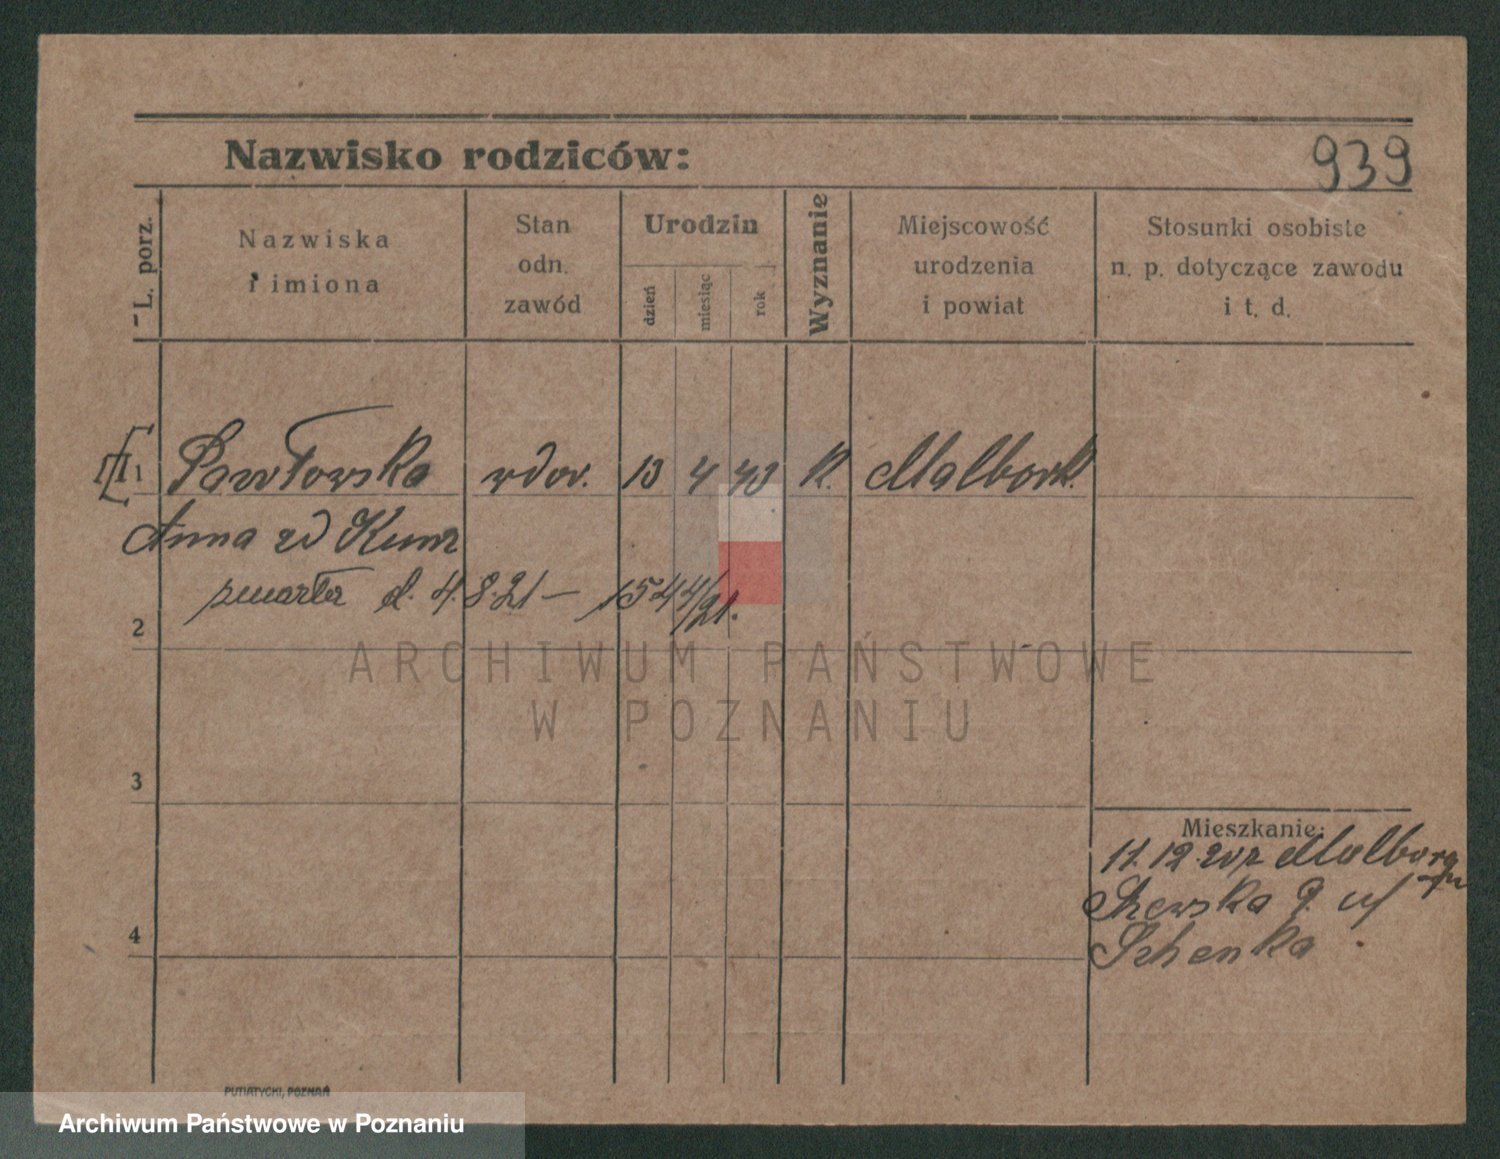 Nazwisko rodziców:
939
L. porz.
Nazwiska
i imiona
Stan
odn.
zawód
Urodzin
dzień
miesiąc
rok
Wyznanie
Miejscowość
urodzenia
i powiat
Stosunki osobiste
n. p. dotyczące zawodu
i t. d.
1 Pawłowska wdow. 13 4 43 k. Malbork.
Anna zd Kunz
zmarła d. 4.8.21 — 1544/21.
2
ARCHIWUM PAŃSTWOWE
W POZNANIU
3
Mieszkanie:
11.12.20 z Malborga
Szewska 9
4
PUTIATYCKI, POZNAŃ
Archiwum Państwowe w Poznaniu